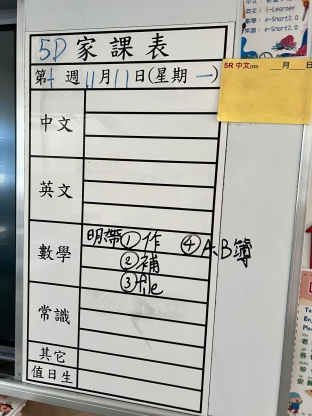 5D 家課表
第十週 11月11日(星期一)
中文
英文
數學
明帶 ① 作 ④ A.B簿
② 補
③ file
常識
其它
值日生
i-Learner
e-Smart2.0
e-Smart2.0
5R 中文 月 日